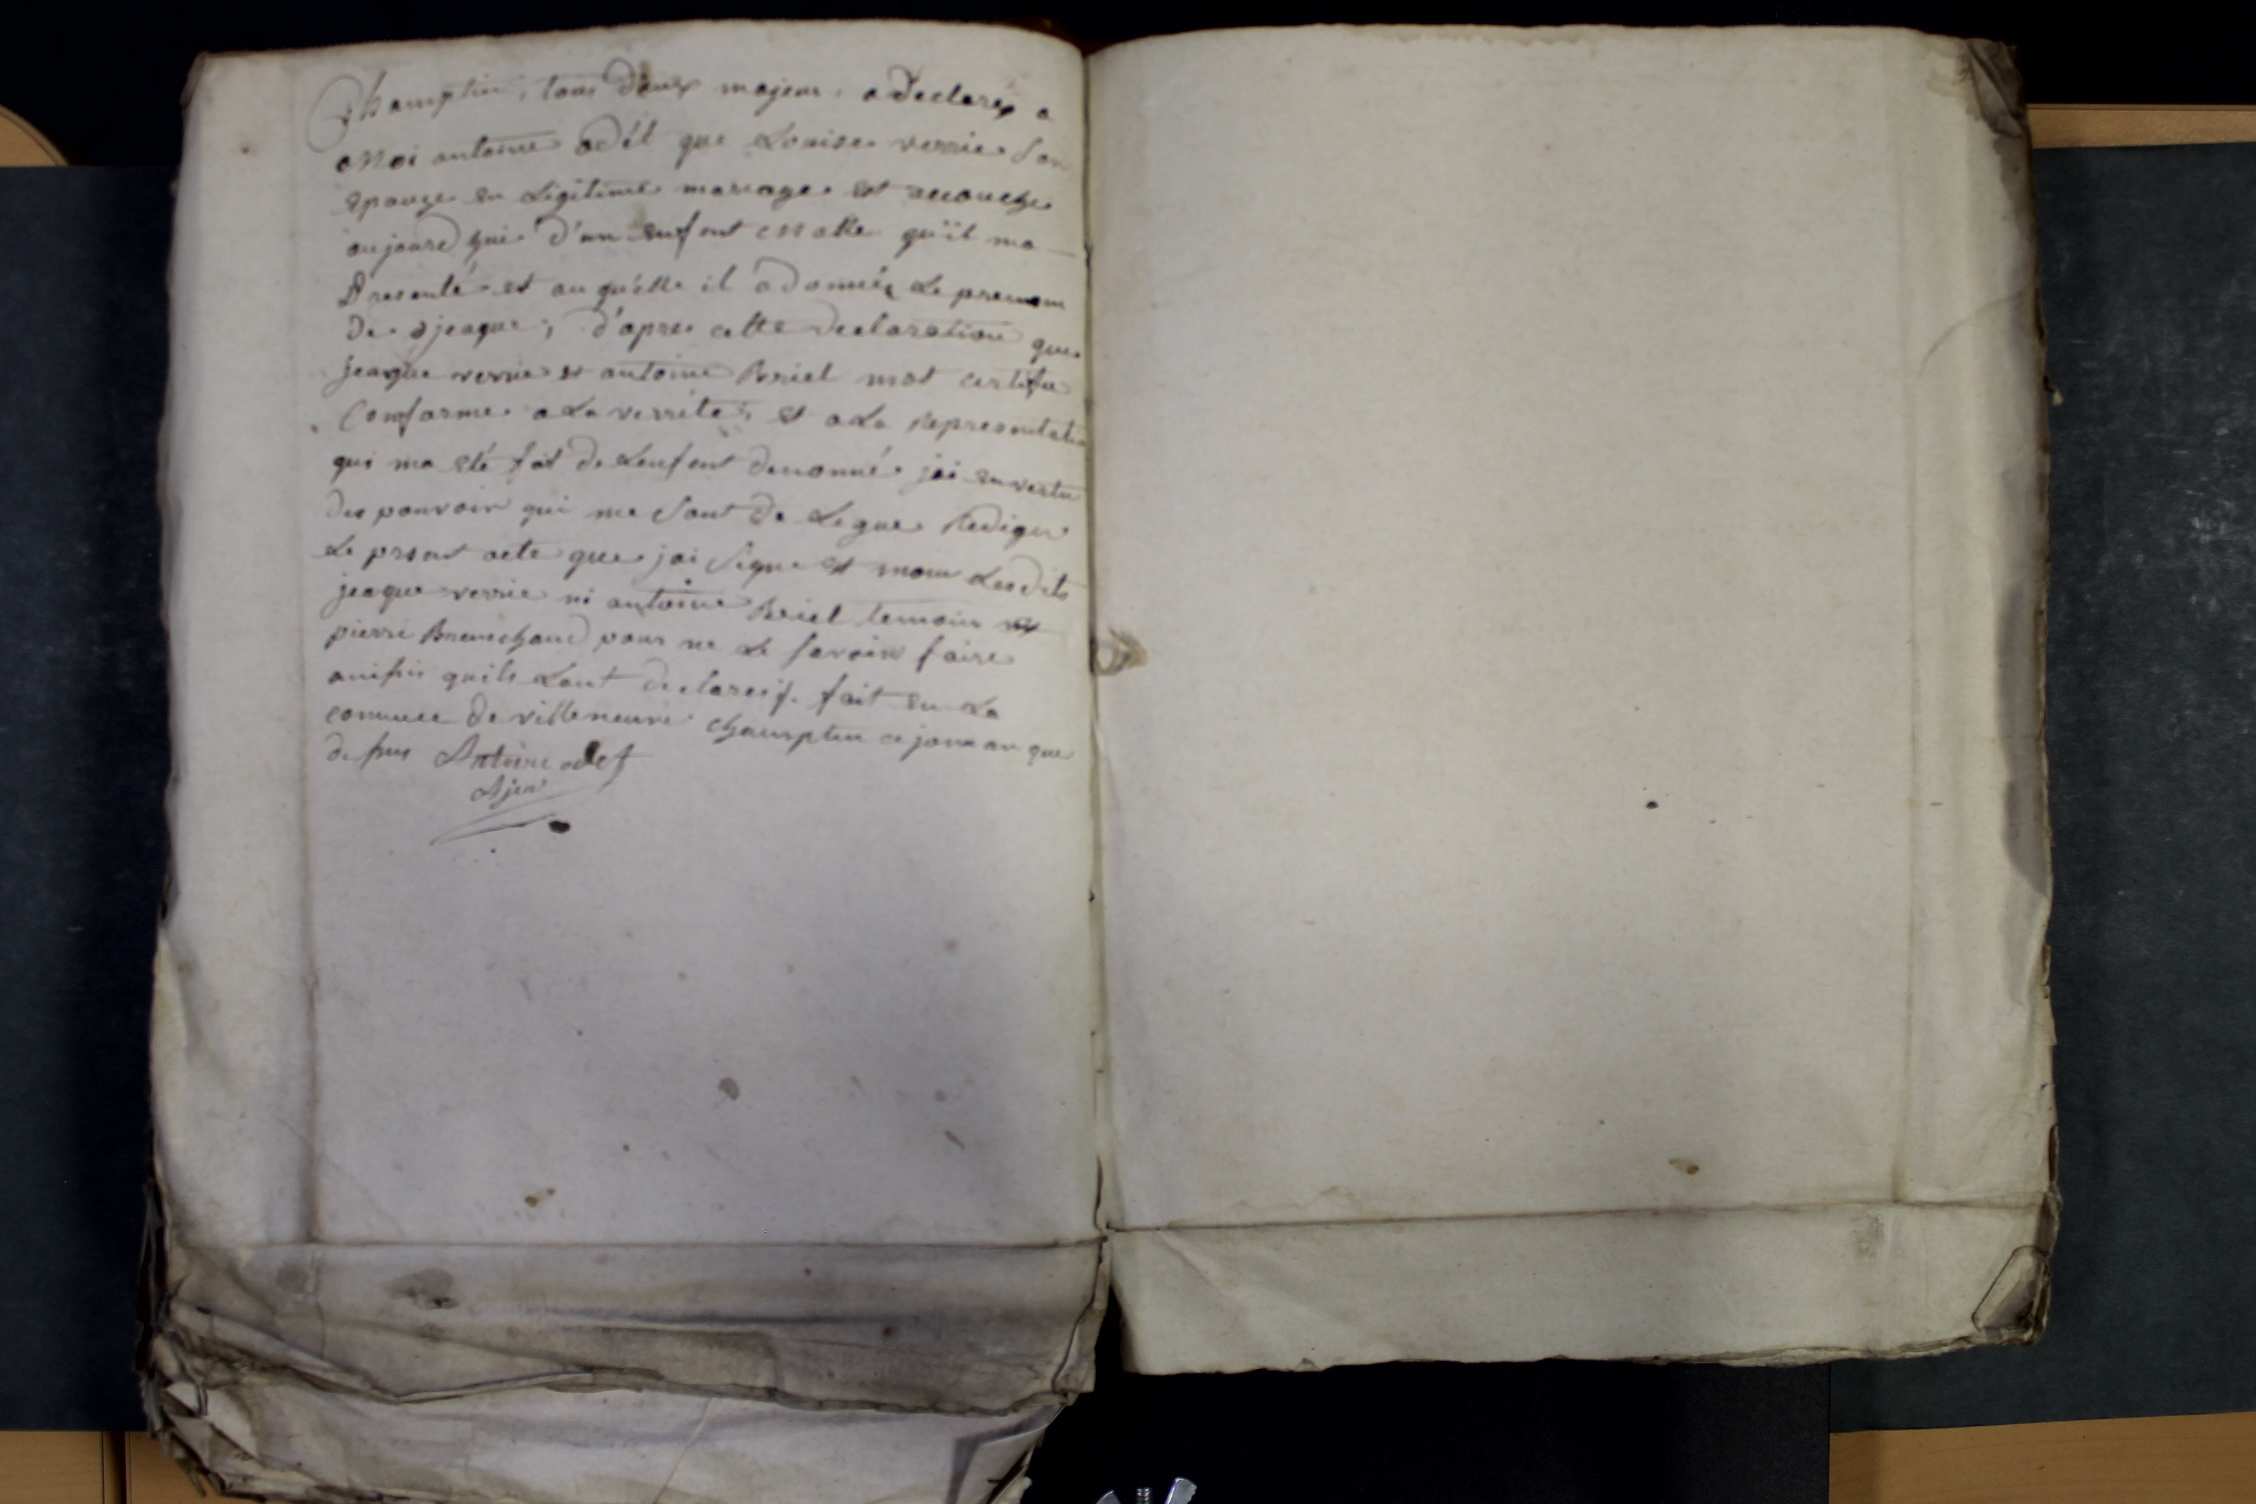 Champtin, tous deux majeur, a declaré a
a Moi antoine odél que Louise verrie son
epouze en Legitime mariage est accouche
aujourd huï d'un enfent malle qu'il ma
Presenté et au quélle il a donné Le prenom
De jeaque, d'apres cette declaration que
jeaque verrie et antoine Briel mot certifie
Conforme a La verrite, et a La Representatio
qui ma eté fait de Lenfent denonmé jai en vertu
des pouvoir qui me sont de Legue Rediger
Le prsent acte que jai signe et nom Lesdits
jeaque verrie ni antoine Briel temoin
pierre Bneuchaud pour ne Le savoir faire
ainsis quils Lont declares. fait en La
comune de villeneuve champtin ce jour an que
de sus Antoine odet
Ajen